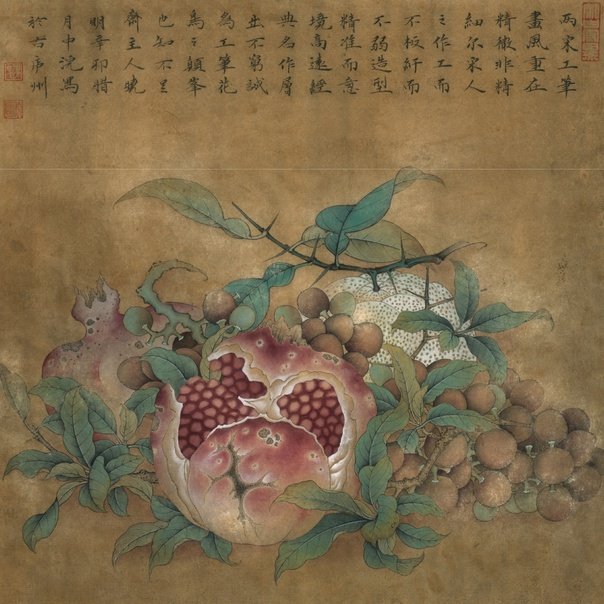 两宋工筆
畫風重在
精微非精
細尔宋人
之作工而
不板紆而
不弱造型
精准而意
境高遠經
典名作層
出不窮誠
為工筆花
鳥之顛峯
也知不足
齋主人曉
明辛卯腊
月中浣馬
於古庐州